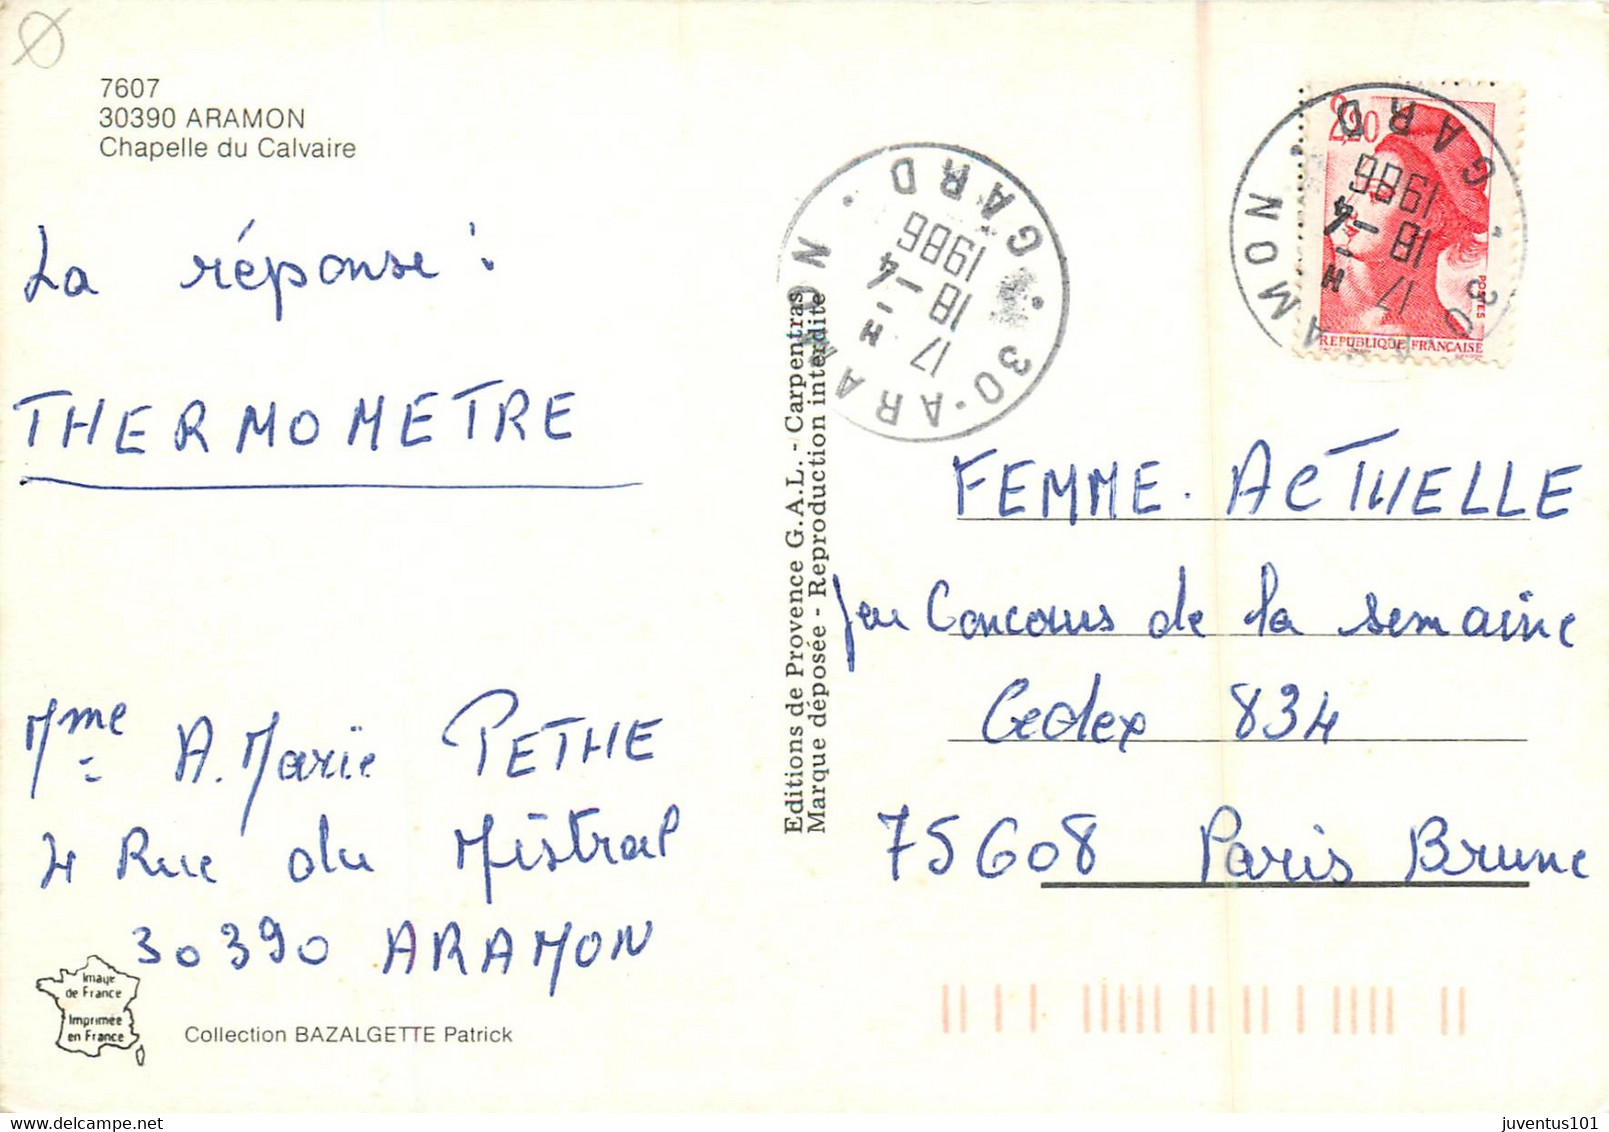 7607
30390 ARAMON
Chapelle du Calvaire
La réponse :
THERMOMETRE
Mme A. Marie PETHE
4 Rue du Mistral
30390 ARAMON
Image
de France
Imprimée
en France
Collection BAZALGETTE Patrick
Editions de Provence G.A.L. - Carpentras
Marque déposée - Reproduction interdite
30 - ARAMON
GARD
17 H
18 - 4
1986
2,20
POSTES
REPUBLIQUE FRANÇAISE
30 ARAMON
GARD
17 H
18 - 4
1986
FEMME. ACTUELLE
Jeu Concours de la semaine
Cedex 834
75608 Paris Brune
juventus101